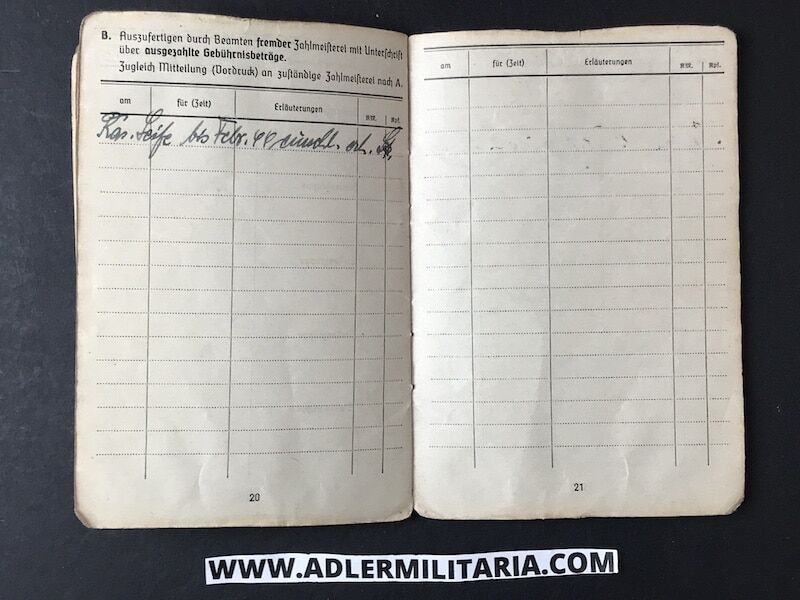 B. Auszufertigen durch Beamten fremder Zahlmeisterei mit Unterschrift
über ausgezahlte Gebührnisbeträge.
Zugleich Mitteilung (Vordruck) an zuständige Zahlmeisterei nach A.
am für (Zeit) Erläuterungen RM. Rpf.
Ras. Seife bis Febr. 44 einschl. erh.
20
am für (Zeit) Erläuterungen RM. Rpf.
21
WWW.ADLERMILITARIA.COM